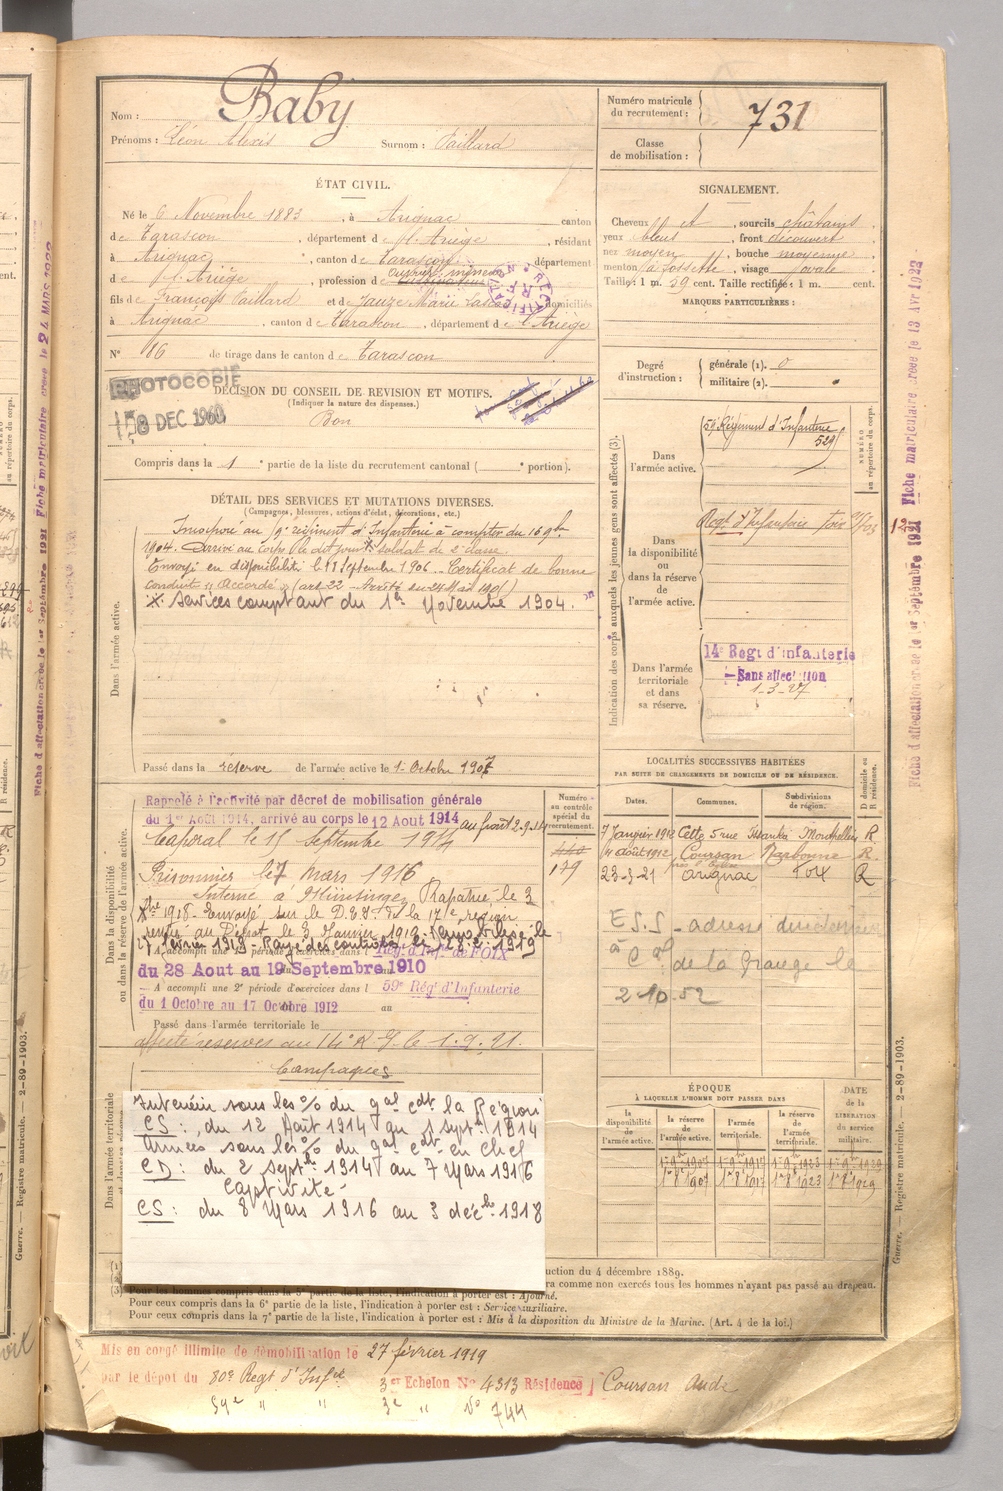 Nom : Baby
Prénoms : Léon Alexis Surnom : Paillard
Numéro matricule du recrutement : 731
Classe de mobilisation :
ÉTAT CIVIL.
Né le 6 Novembre 1883, à Arignac canton
de Tarascon, département de l'Ariège, résidant
à Arignac, canton de Tarascon, département
de l'Ariège, profession de Ouvrier mineur
fils de François Paillard et de Jauze Marie domiciliés
à Arignac, canton de Tarascon, département de l'Ariège
RECTIFICATION R.F.
N° 86 de tirage dans le canton de Tarascon
SIGNALEMENT.
Cheveux et, sourcils châtains
yeux bleus, front découvert
nez moyen, bouche moyenne
menton à fossette, visage ovale
Taille : 1 m. 59 cent. Taille rectifiée : 1 m. cent.
MARQUES PARTICULIÈRES :
Degré d'instruction : générale (1). 0
militaire (2).
PHOTOCOPIE
DEC 1960
DÉCISION DU CONSEIL DE REVISION ET MOTIFS.
(Indiquer la nature des dispenses.)
Bon
Compris dans la 1e partie de la liste du recrutement cantonal ( e portion).
DÉTAIL DES SERVICES ET MUTATIONS DIVERSES.
(Campagnes, blessures, actions d'éclat, décorations, etc.)
Dans l'armée active.
Incorporé au régiment d'Infanterie à compter du 16 9bre
1904. Arrivé au corps le dit jour soldat de 2e classe.
Envoyé en disponibilité le 18 Septembre 1906. Certificat de bonne
conduite "Accordé"
Services comptant du 1er Novembre 1904.
Passé dans la réserve de l'armée active le 1 Octobre 1907
Indication des corps auxquels les jeunes gens sont affectés (3).
NUMÉRO au répertoire du corps.
Dans l'armée active.
59e Régiment d'Infanterie
529
Dans la disponibilité ou dans la réserve de l'armée active.
Regt d'Infanterie Foix
Dans l'armée territoriale et dans sa réserve.
14e Regt d'infanterie
Sans affectation
1-3-27
Dans la disponibilité ou dans la réserve de l'armée active.
Numéro au contrôle spécial du recrutement.
179
Rappelé à l'activité par décret de mobilisation générale
du 1er Août 1914, arrivé au corps le 12 Aout 1914 au front 2.9.14
Caporal le 15 Septembre 1914
Prisonnier le 7 Mars 1916
Interné à Münsingen Rapatrié le 3
Xbre 1918. Envoyé sur le D. de la 17e région
rentré au Dépôt le 3 Janvier 1919. Démobilisé le
27 février 1919. Rayé des contrôles le 28.2.1919
A accompli une 1e période d'exercices dans l Rég. d'Inf. de FOIX
du 28 Aout au 19 Septembre 1910
A accompli une 2e période d'exercices dans l 59e Rég' d'Infanterie
du 1 Octobre au 17 Octobre 1912 au
Passé dans l'armée territoriale le
affecté réserves au 14e R.I. le 1.9.21.
Campagnes
Dans l'armée territoriale
Intérieur sous les % du gal cdt la Région
CS : du 12 Août 1914 au 1 septbre 1914
Armées sous les % du gal cdt en chef
CD : du 2 septbre 1914 au 7 Mars 1916
Captivité
CS : du 8 Mars 1916 au 3 décbre 1918
LOCALITÉS SUCCESSIVES HABITÉES
PAR SUITE DE CHANGEMENTS DE DOMICILE OU DE RÉSIDENCE.
Dates. Communes. Subdivisions de région. D domicile ou R résidence.
7 Janvier 1912 Cette, 5 rue Montpellier R.
4 août 1912 Coursan Narbonne R.
23-3-21 Arignac Foix R
E.S.S - adresse
à Cal de la Grange le
2-10-52
ÉPOQUE
À LAQUELLE L'HOMME DOIT PASSER DANS
la disponibilité de l'armée active. la réserve de l'armée active. l'armée territoriale. la réserve de l'armée territoriale. DATE de la LIBÉRATION du service militaire.
1er 8bre 1907 1er 8bre 1917 1er 8bre 1923 1er 8bre 1929
uction du 4 décembre 1889.
ra comme non exercés tous les hommes n'ayant pas passé au drapeau.
Pour les hommes compris dans la 5e partie de la liste, l'indication à porter est : Ajourné.
Pour ceux compris dans la 6e partie de la liste, l'indication à porter est : Service auxiliaire.
Pour ceux compris dans la 7e partie de la liste, l'indication à porter est : Mis à la disposition du Ministre de la Marine. (Art. 4 de la loi.)
Mis en congé illimité de démobilisation le 27 février 1919
par le dépôt du 80e Regt d'Infie 3er Echelon N° 4313 Résidence Coursan Aude
59e " " 3e " N° 744
Fiche d'affectation créée le 1er Septembre 1921 Fiche matriculaire créée le 13 Avr 1922
Guerre. — Registre matricule. — 2-89-1903.
Fiche d'affectation créée le 1er Septembre 1921 Fiche matriculaire créée le 24 MARS 1922
Guerre. — Registre matricule. — 2-89-1903.